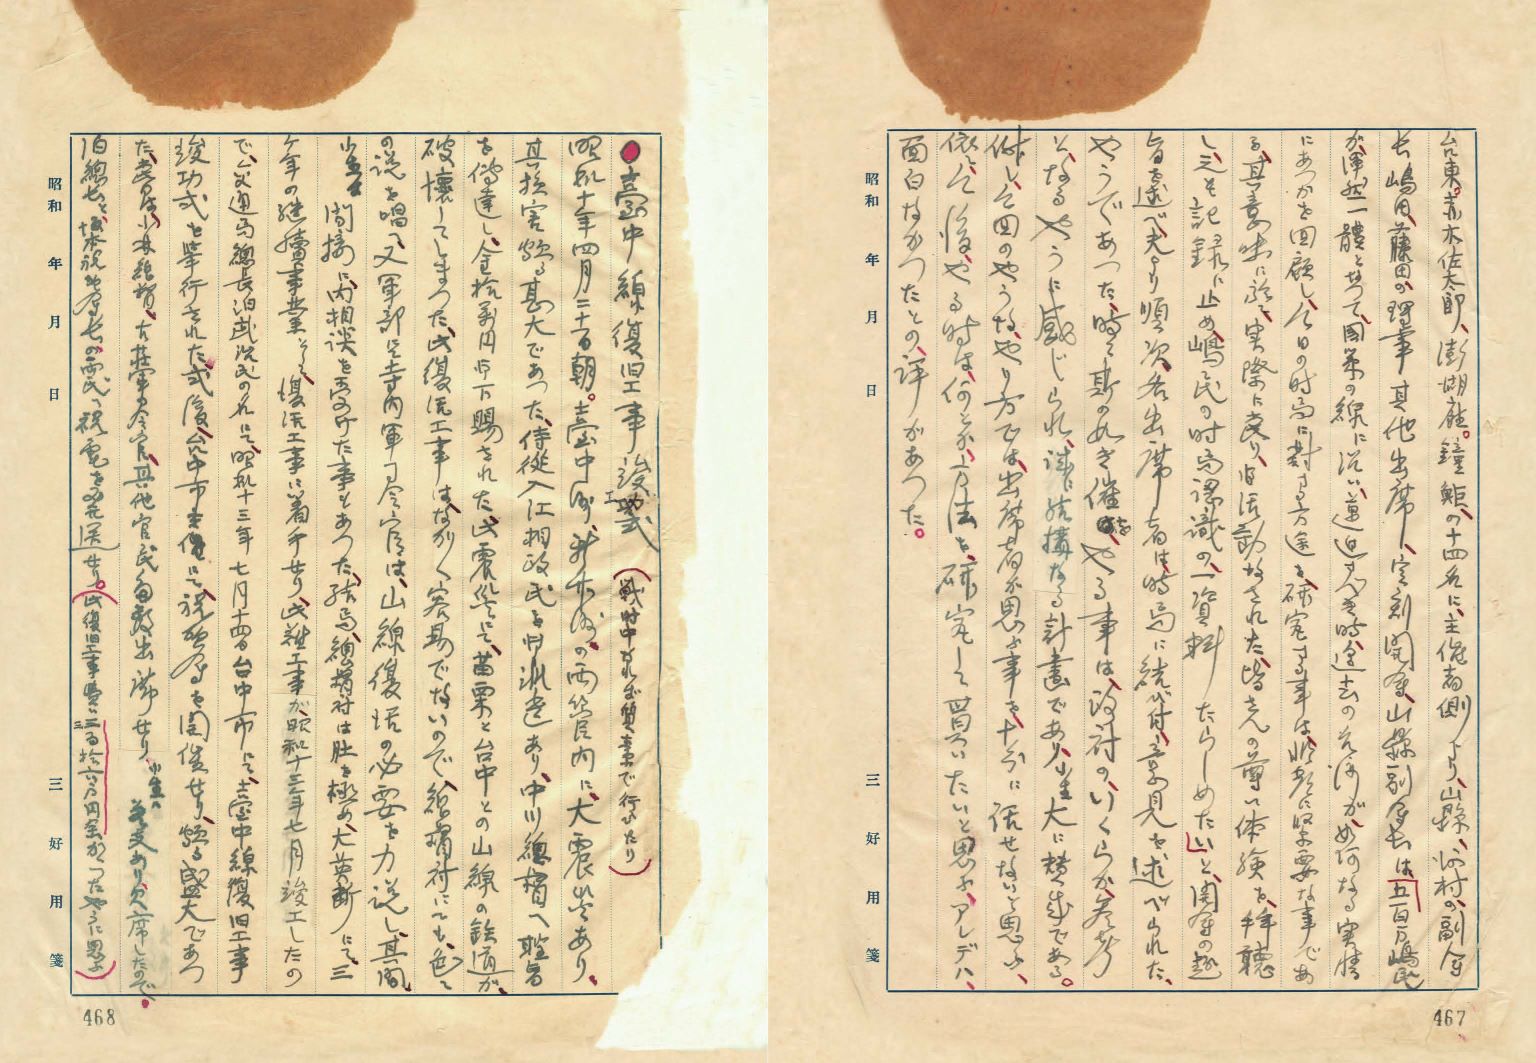 台東。赤木佐太郎、澎湖庁。鐘鮔、の十四名に、主催者側より、山縣、河村の、副会
長嶋田、藤田の理事其他出席し、定刻開会、山縣副会長は「五百万嶋民
が、渾然一體となつて、國策の線に沿い、邁進すべき時、過去の治海が如何なる実情
にあつかを回顧し、今日の時局に對する方途を研究する事は、非常に必要な事であ
る、其意味に於て、実際に当り、旧活動なされた、皆さんの尊い体験を、拝聴
し、之を記録に止め、嶋民の時局認識の、一資料たらしめたい」と、開会の趣
旨を述べ、夫より順次各出席者は、時局に結び付、意見を述べられた、
やうであつた、時々斯の如き催しをやる事は、検討の、いくらか参考
となるやうに感じられ、誠に結構なる計畫であり、小生大に賛成である。
併し、今回のやうな、やり方では、出席者が思ふ事を十分に話せないと思ふ、
依て、今後、やる時は、何とか、方法を、研究して貰いたいと思ふ、アレデハ、
面白なかつたとの、評があつた。
昭和 年 月 日
三好用箋
467
●臺中線復旧工事竣工式 (戦時中なれば質素で行ひたり)
昭和十年四月二十一日朝。臺中州、新竹州。の両管内に、大震災あり、
其損害頗る甚大であつた、侍從入江相政氏を御派遣あり、中川總督へ聖旨
を傳達し、金拾萬円御下賜された、此震災にて、苗栗と台中との山線の鉄道が、
破壊してしまつた、此復旧工事はなかなか容易でないので、總督府にても、色々
の説を唱へ、又軍部にて寺内軍司令官は、山線復活の必要を力説し、其間
小生も間接に、内相談を受けた事もあつた、結局、總督府は肚を極め、大英断にて、三
ケ年の継續事業として、復活工事に着手せり、此難工事が昭和十三年七月竣工したの
で、交通局總長泊武治氏の名にて、昭和十三年七月十四日台中市にて、臺中線復旧工事
竣功式を挙行された、式後、台中市主催にて、祝賀会を開催せり、頗る盛大であつ
た、當日は、小林總督、古荘軍司令官、其他官民多数出席せり、小生は差支あり欠席したので、
泊總長と、坂本祝賀会長の両氏へ祝電を発送せり。(此復旧工事費は二百拾六万円余かゝつたやうに思ふ)
昭和 年 月 日
三好用箋
468